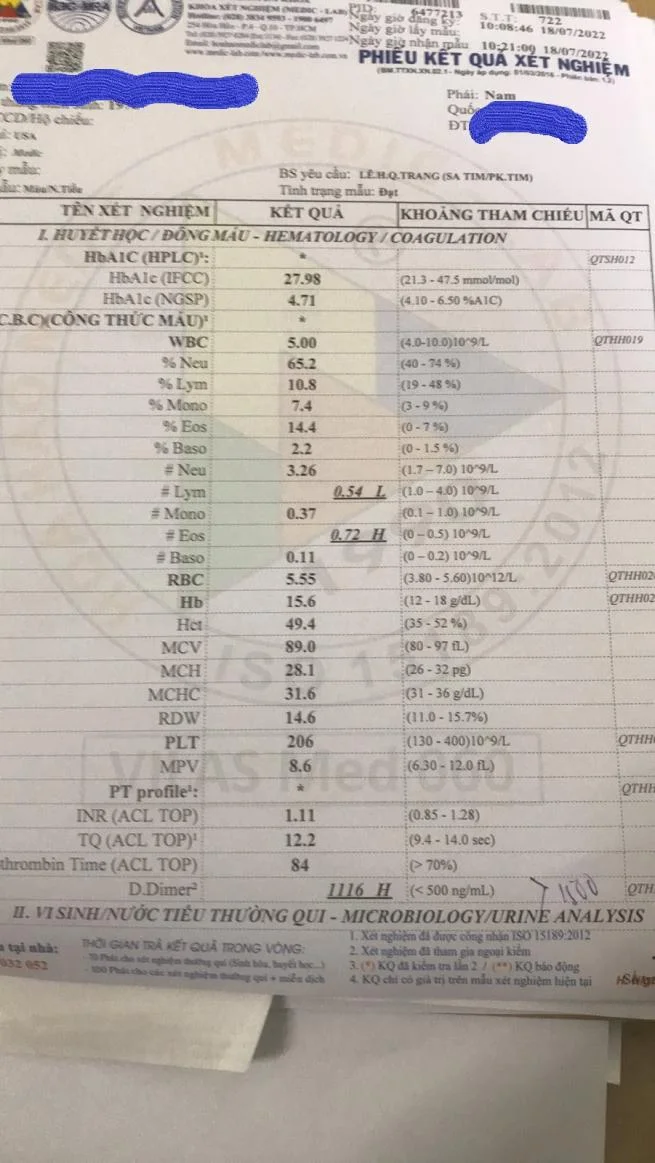 KHOA XÉT NGHIỆM (MEDIC - LAB)
Hotline: (028) 3834 9593 - 1900 6497
PID: 6477213
S.T.T: 722
Ngày giờ đăng ký: 10:08:46 18/07/2022
Ngày giờ lấy mẫu:
Ngày giờ nhận mẫu 10:21:00 18/07/2022
PHIẾU KẾT QUẢ XÉT NGHIỆM
(BM.TTXN.XN.02.1 - Ngày áp dụng: 01/03/2016 - Phiên bản: 1.2)
Phái: Nam
ĐT
USA
Medic
Máu/N.Tiểu
BS yêu cầu: LÊ.H.Q.TRANG (SA TIM/PK.TIM)
Tình trạng mẫu: Đạt
TÊN XÉT NGHIỆM KẾT QUẢ KHOẢNG THAM CHIẾU MÃ QT
I. HUYẾT HỌC / ĐÔNG MÁU - HEMATOLOGY / COAGULATION
HbA1C (HPLC)¹: * QTSH012
HbA1c (IFCC) 27.98 (21.3 - 47.5 mmol/mol)
HbA1c (NGSP) 4.71 (4.10 - 6.50 %A1C)
C.B.C)(CÔNG THỨC MÁU)¹ *
WBC 5.00 (4.0-10.0)10^9/L QTHH019
% Neu 65.2 (40 - 74 %)
% Lym 10.8 (19 - 48 %)
% Mono 7.4 (3 - 9 %)
% Eos 14.4 (0 - 7 %)
% Baso 2.2 (0 - 1.5 %)
# Neu 3.26 (1.7 – 7.0) 10^9/L
# Lym 0.54 L (1.0 – 4.0) 10^9/L
# Mono 0.37 (0.1 – 1.0) 10^9/L
# Eos 0.72 H (0 – 0.5) 10^9/L
# Baso 0.11 (0 – 0.2) 10^9/L
RBC 5.55 (3.80 - 5.60)10^12/L QTHH02
Hb 15.6 (12 - 18 g/dL) QTHH02
Hct 49.4 (35 - 52 %)
MCV 89.0 (80 - 97 fL)
MCH 28.1 (26 - 32 pg)
MCHC 31.6 (31 - 36 g/dL)
RDW 14.6 (11.0 - 15.7%)
PLT 206 (130 - 400)10^9/L QTHH
MPV 8.6 (6.30 - 12.0 fL)
PT profile¹: * QTHH
INR (ACL TOP) 1.11 (0.85 - 1.28)
TQ (ACL TOP)¹ 12.2 (9.4 - 14.0 sec)
thrombin Time (ACL TOP) 84 (> 70%)
D.Dimer² 1116 H (< 500 ng/mL) QTH
II. VI SINH/NƯỚC TIỂU THƯỜNG QUI - MICROBIOLOGY/URINE ANALYSIS
tại nhà:
032 052
THỜI GIAN TRẢ KẾT QUẢ TRONG VÒNG:
- 70 Phút cho xét nghiệm thường qui (Sinh hóa, huyết học...)
- 100 Phút cho các xét nghiệm thường qui + miễn dịch
1. Xét nghiệm đã được công nhận ISO 15189:2012
2. Xét nghiệm đã tham gia ngoại kiểm
3. (*) KQ đã kiểm tra lần 2 / (**) KQ báo động
4. KQ chỉ có giá trị trên mẫu xét nghiệm hiện tại
ISO 15189:2012
VILAS Med 000